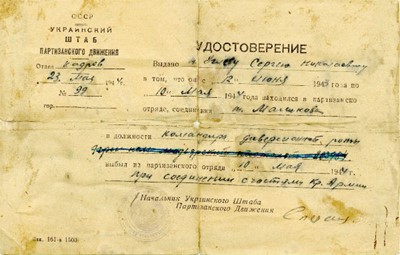 СССР
УКРАИНСКИЙ
ШТАБ
ПАРТИЗАНСКОГО ДВИЖЕНИЯ
Отдел Кадров
23 Мая 194
№ 99
УДОСТОВЕРЕНИЕ
Выдано Сергею Николаевичу
в том, что он с 12 июня 194
по 10 мая 194 года находился в партизанском
отряде, соединении т. Маликова
в должности командира диверсионной роты
выбыл из партизанского отряда 10 мая 194
при соединении с частями Кр. Армии
Начальник Украинского Штаба
Партизанского Движения
Зак. 161-а 1500